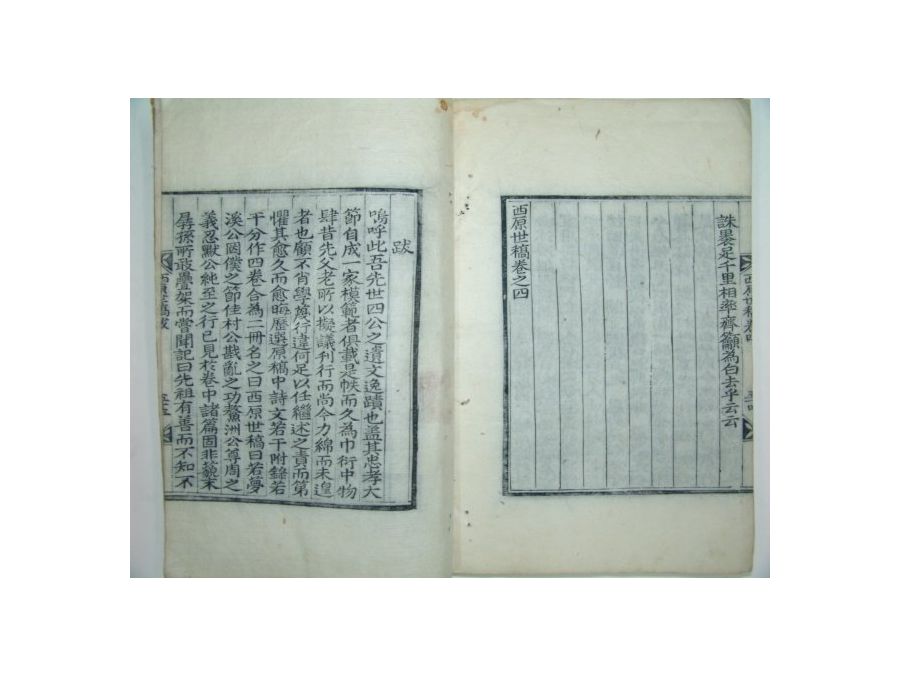 誅裹足千里相率齊籲爲白去乎云云
西原世稿卷之四
西原世稿卷四
五十四
跋
嗚呼此吾先世四公之遺文逸蹟也盖其忠孝大
節自成一家模範者俱載是帙而久爲巾衍中物
肆昔先父老所以擬議刋行而尚今力綿而未遑
者也顧不肖學蔑行違何足以任繼述之責而第
懼其愈久而愈晦歷選原稿中詩文若干附錄若
干分作四卷合爲二冊名之曰西原世稿曰若夢
溪公罔僕之節佳村公戡亂之功鰲洲公尊周之
義忍默公純至之行已見於卷中諸篇固非藐末
孱孫所敢疊架而嘗聞記曰先祖有善而不知不
西原世稿跋
五十五